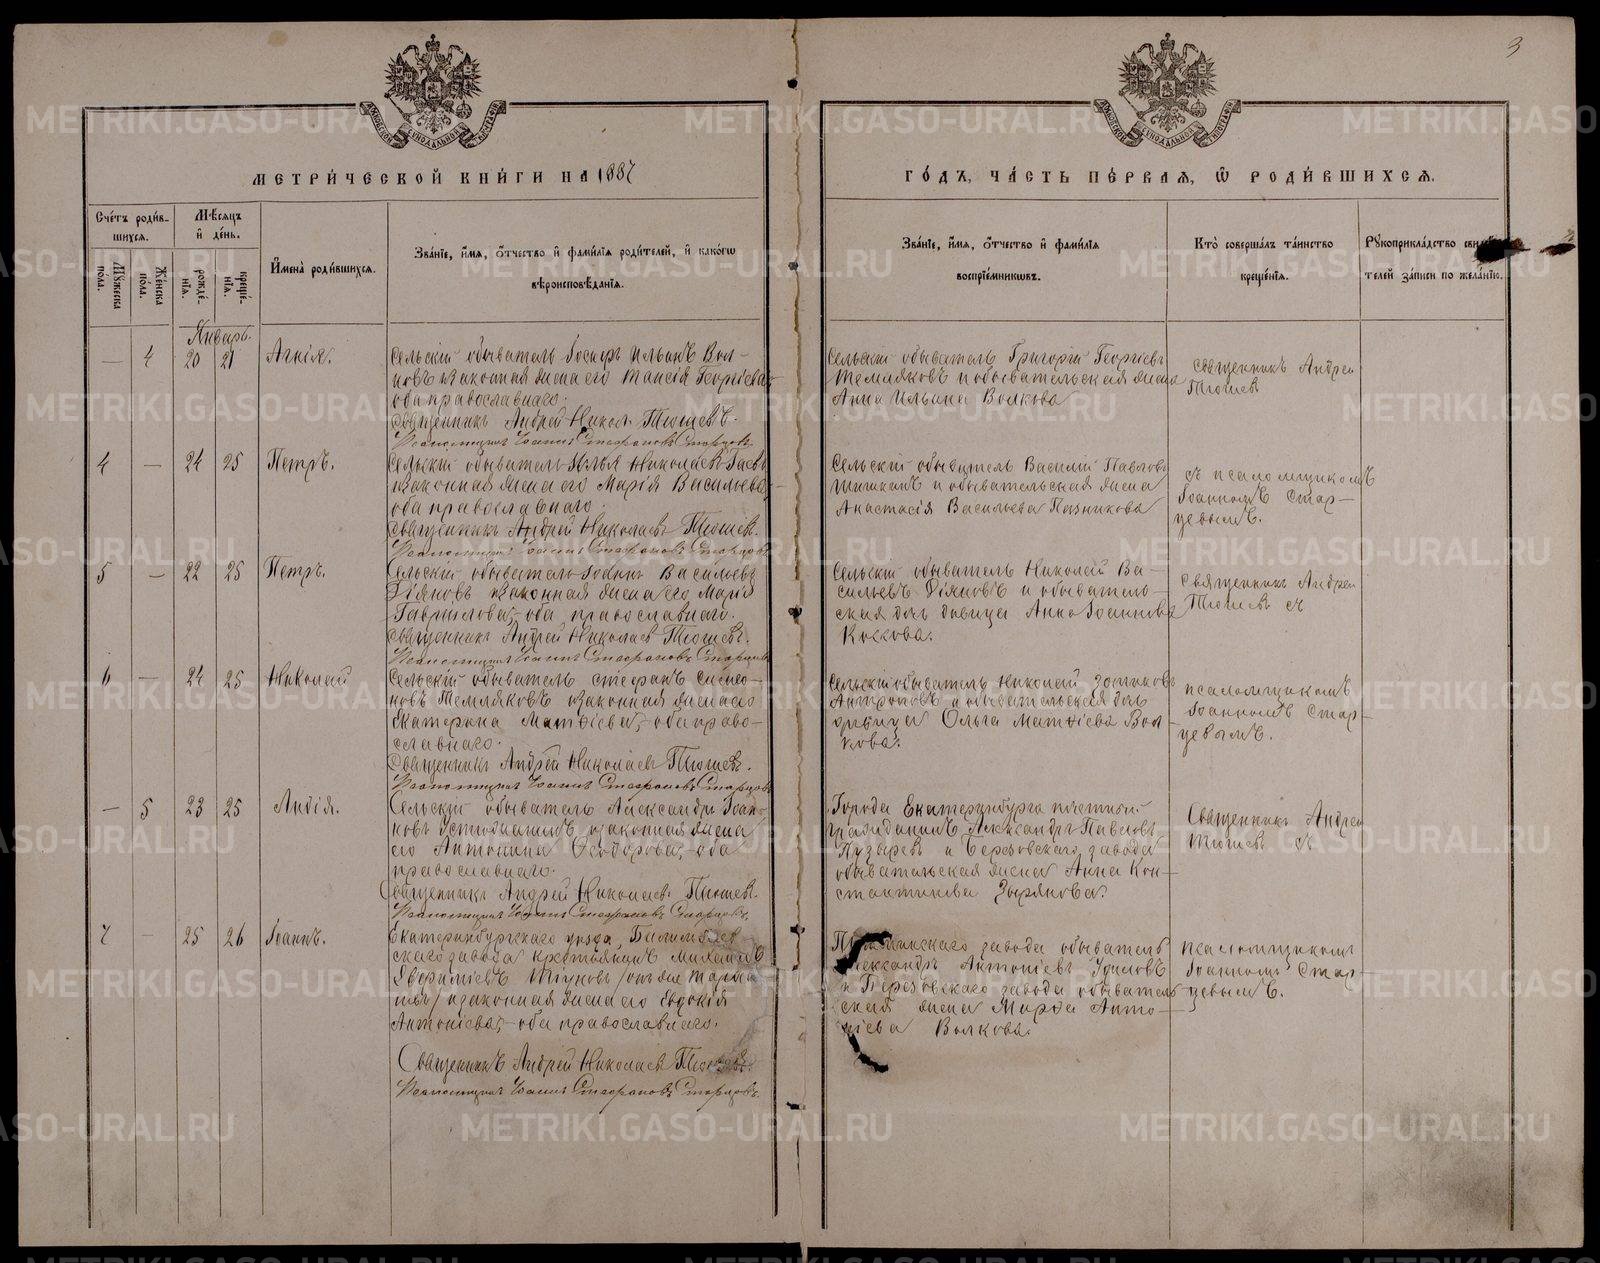 3
МЕТРИ́ЧЕСКОЙ КНИ́ГИ НА 1887
ГО́ДЪ, ЧА́СТЬ ПЕ́РВАЯ, Ѿ РОДИ́ВШИХСЯ.
Сче́тъ роди́в-
шихся.
Мѣсяцъ
и де́нь.
Му́жеска
по́ла.
Же́нска
по́ла.
рожде́-
нія.
креще́-
нія.
Имена̀ роди́вшихся.
Зва́ніе, и́мя, о́тчество и фами́лія роди́телей, и како́гѡ
вѣроисповѣ́данія.
Зва́ніе, и́мя, о́тчество и фами́лія
воспріе́мниковъ.
Кто̀ соверша́лъ та́инство
креще́нія.
Рукоприкла́дство свидѣ́-
телей за́писи по жела́нію.
Январь
— 4 20 21 Агнія.
Сельскій обыватель Іосифъ Ильинъ Вол-
ковъ и законная жена его Таисія Георгіева
оба православнаго.
Священникъ Андрей Никол. Тюшевъ.
Псаломщикъ Іоаннъ Стефановъ Старцевъ.
Сельскій обыватель Григорій Георгіевъ
Темляковъ и обывательская жена
Анна Ильина Волкова
Священникъ Андрей
Тюшевъ
4 — 24 25 Петръ.
Сельскій обыватель Илья Николаевъ
и законная жена его Марія Васильева,
оба православнаго.
Священникъ Андрей Николаевъ Тюшевъ.
Псаломщикъ Іоаннъ Стефановъ Старцевъ.
Сельскій обыватель Василій Павловъ
и обывательская жена
Анастасія Васильева
съ псаломщикомъ
Іоанномъ Стар-
цевымъ.
5 — 22 25 Петръ.
Сельскій обыватель Іоаннъ Васильевъ
и законная жена его Марія
Гавриилова, оба православнаго.
Священникъ Андрей Николаевъ Тюшевъ.
Псаломщикъ Іоаннъ Стефановъ Старцевъ
Сельскій обыватель Николай Ва-
сильевъ и обыватель-
ская дочь девица Анна Іоаннова
Священникъ Андрей
Тюшевъ съ
6 — 24 25 Николай
Сельскій обыватель Стефанъ Симео-
новъ Темляковъ и законная жена его
Екатерина Матѳіева, оба право-
славнаго.
Священникъ Андрей Николаевъ Тюшевъ.
Псаломщикъ Іоаннъ Стефановъ Старцевъ
Сельскій обыватель Николай
и обывательская дочь
девица Ольга Матѳіева Вол-
кова.
псаломщикомъ
Іоанномъ Стар-
цевымъ.
— 5 23 25 Лидія.
Сельскій обыватель Александръ Іоан-
новъ и законная жена
его Антонина Ѳеодорова, оба
православнаго.
Священникъ Андрей Николаевъ Тюшевъ.
Псаломщикъ Іоаннъ Стефановъ Старцевъ.
Города Екатеринбурга почетный
гражданинъ Александръ Павловъ
Пузыревъ и Березовскаго завода
обывательская жена Анна Кон-
стантинова Зырянова.
Священникъ Андрей
Тюшевъ съ
7 — 25 26 Іоаннъ.
Екатеринбургскаго уѣзда, Билимбаев-
скаго завода крестьянинъ Михаилъ
и законная жена его Евдокія
Антоніева, оба православнаго.
Священникъ Андрей Николаевъ Тюшевъ.
Псаломщикъ Іоаннъ Стефановъ Старцевъ.
завода обыватель
Александръ Антоніевъ
и Березовскаго завода обыватель-
ская жена Марѳа Анто-
ніева Волкова.
псаломщикомъ
Іоанномъ Стар-
цевымъ.
METRIKI.GASO-URAL.RU